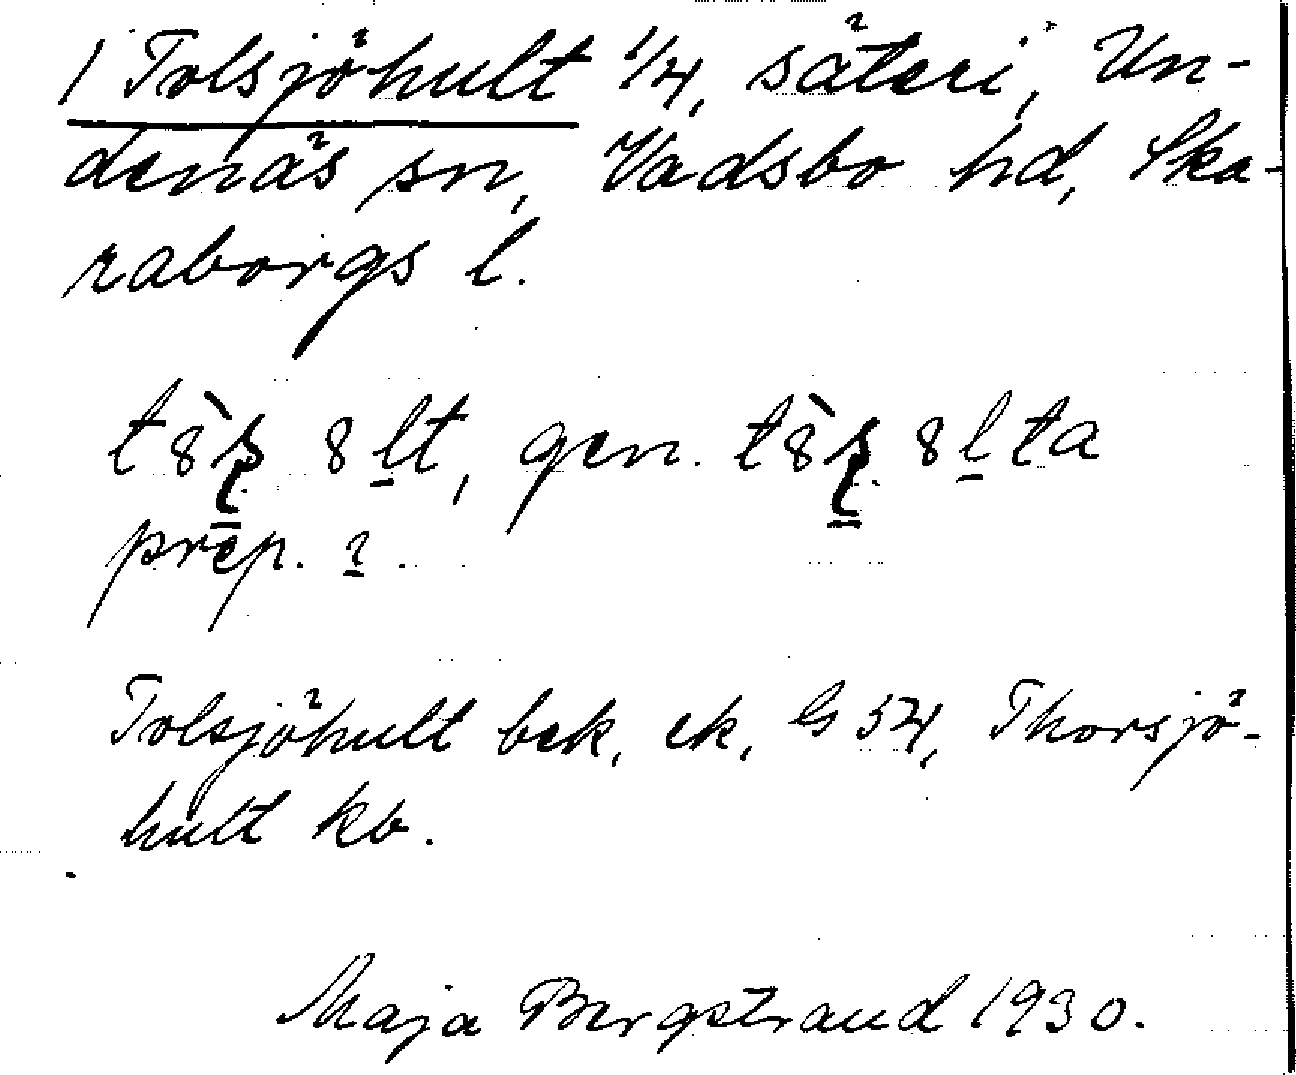 1 Tolsjöhult 1/4, säteri, Un-
denäs sn, Vadsbo hd, Ska-
raborgs l.
gen.
prep. ı.
Tolsjöhult bek, ek, G 54, Thorsjö-
hult kb.
Maja Bergstrand 1930.